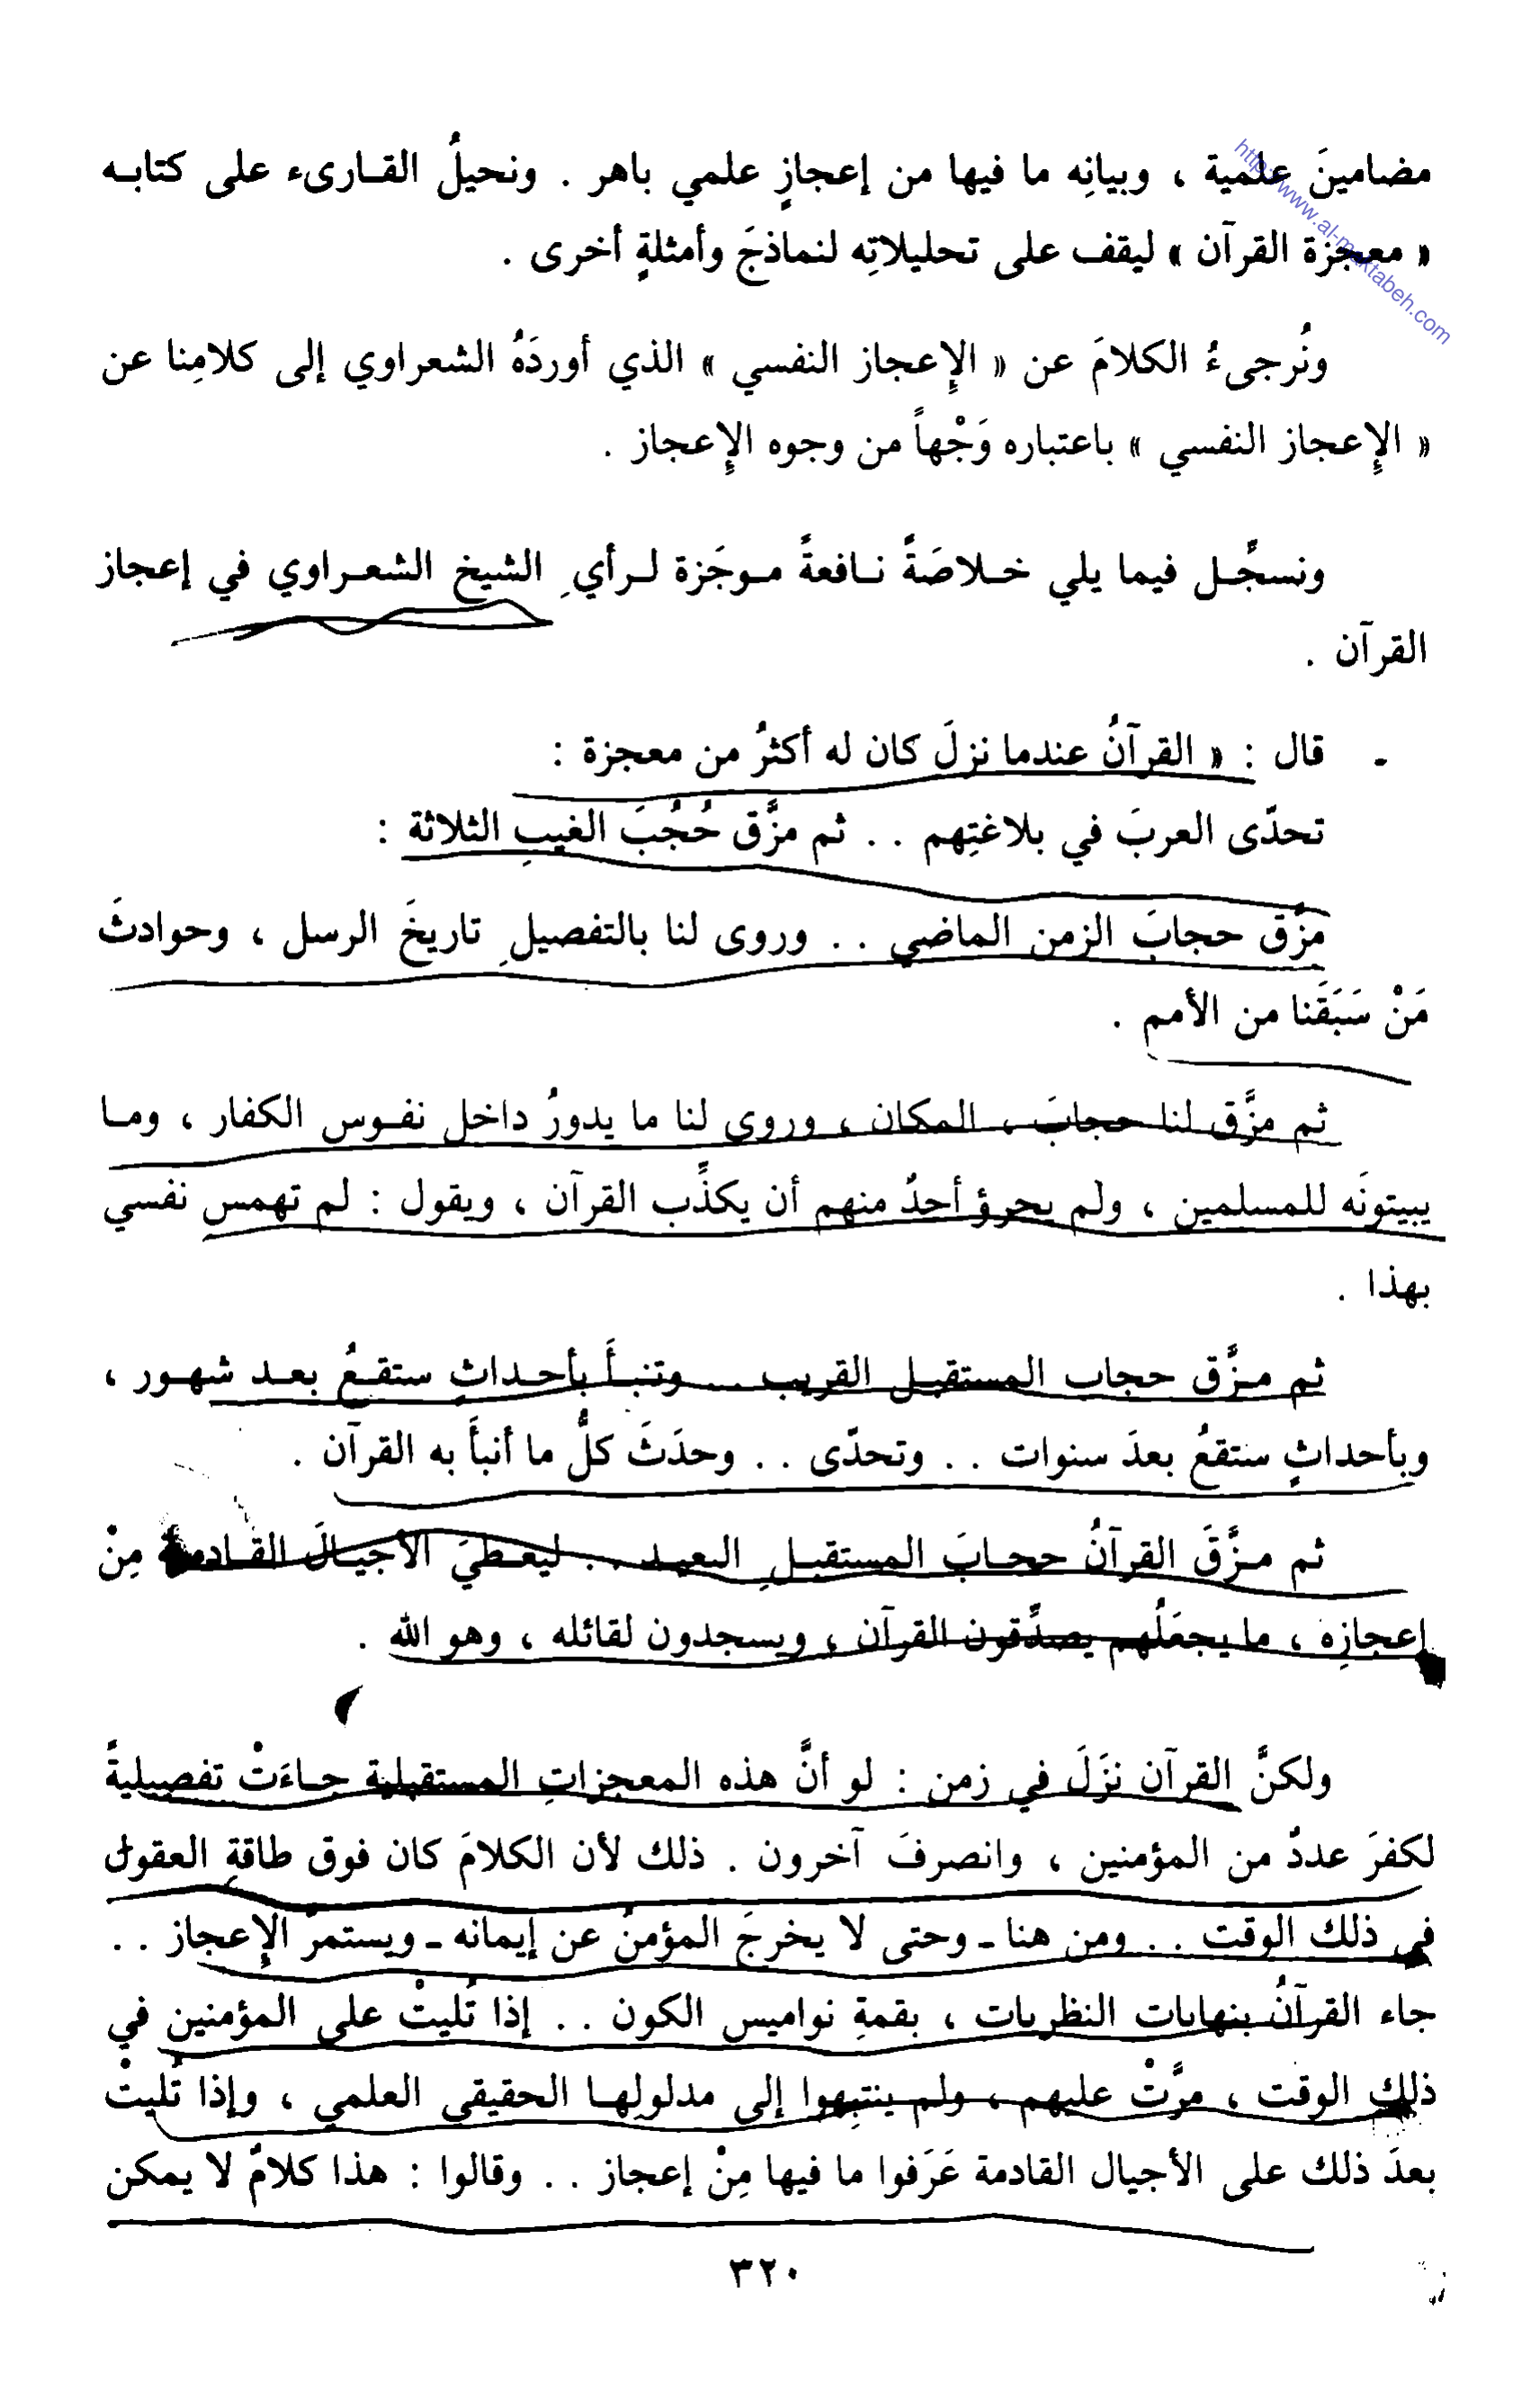 مضامينَ علمية ، وبيانِه ما فيها من إعجازٍ علمي باهر . ونحيلُ القـارىء على كتابـه
« معجزة القرآن » ليقف على تحليلاتِه لنماذجَ وأمثلةٍ أخرى .
ونُرجىءُ الكلامَ عن « الإعجاز النفسي » الذي أوردَهُ الشعراوي إلى كلامِنا عن
« الإعجاز النفسي » باعتباره وَجْهاً من وجوه الإعجاز .
ونسجِّـل فيما يلي خـلاصَةً نـافعةً مـوجَزة لـرأيِ الشيخ الشعـراوي في إعجاز
القرآن .
- قال : « القرآنُ عندما نزلَ كان له أكثرُ من معجزة :
تحدّى العربَ في بلاغتِهم . . ثم مزَّق حُجُبَ الغيبِ الثلاثة :
مزَّق حجابَ الزمن الماضي . . وروى لنا بالتفصيلِ تاريخَ الرسل ، وحوادثَ
مَنْ سَبَقَنا من الأمم .
ثم مزَّق لنا حجابَ ، المكان ، وروى لنا ما يدورُ داخل نفـوس الكفار ، ومـا
يبيتونَه للمسلمين ، ولم يجرؤ أحدٌ منهم أن يكذِّب القرآن ، ويقول : لم تهمس نفسي
بهذا .
ثم مـزَّق حجاب المستقبـل القريب . . وتنبـأَ بأحـداثٍ ستقـعُ بعـد شهـور ،
وبأحداثٍ ستقعُ بعدَ سنوات . . وتحدّى . . وحدَثَ كلُّ ما أنبأَ به القرآن .
ثم مـزَّقَ القرآنُ حجـابَ المستقبـلِ البعيـد . . ليعـطيَ الأجيـالَ القـادمة مِنْ
إعجازِه ، ما يجعَلُهم يصدِّقون القرآن ، ويسجدون لقائله ، وهو الله .
ولكنَّ القرآن نزَلَ في زمن : لو أنَّ هذه المعجزاتِ المستقبلية جـاءَتْ تفصيليةً
لكفرَ عددٌ من المؤمنين ، وانصرفَ آخرون . ذلك لأن الكلامَ كان فوق طاقةِ العقول
في ذلك الوقت . . ومن هنا ـ وحتى لا يخرجَ المؤمنُ عن إيمانه ـ ويستمرَّ الإعجاز . .
جاء القرآنُ بنهايات النظريات ، بقمةِ نواميس الكون . . إذا تُليتْ على المؤمنين في
ذلك الوقت ، مرَّتْ عليهم ، ولم ينتبِهوا إلى مدلولِهـا الحقيقي العلمي ، وإذا تُليتْ
بعدَ ذلك على الأجيال القادمة عَرَفوا ما فيها مِنْ إعجاز . . وقالوا : هذا كلامٌ لا يمكن
٣٢٠
http://www.al-maktabeh.com